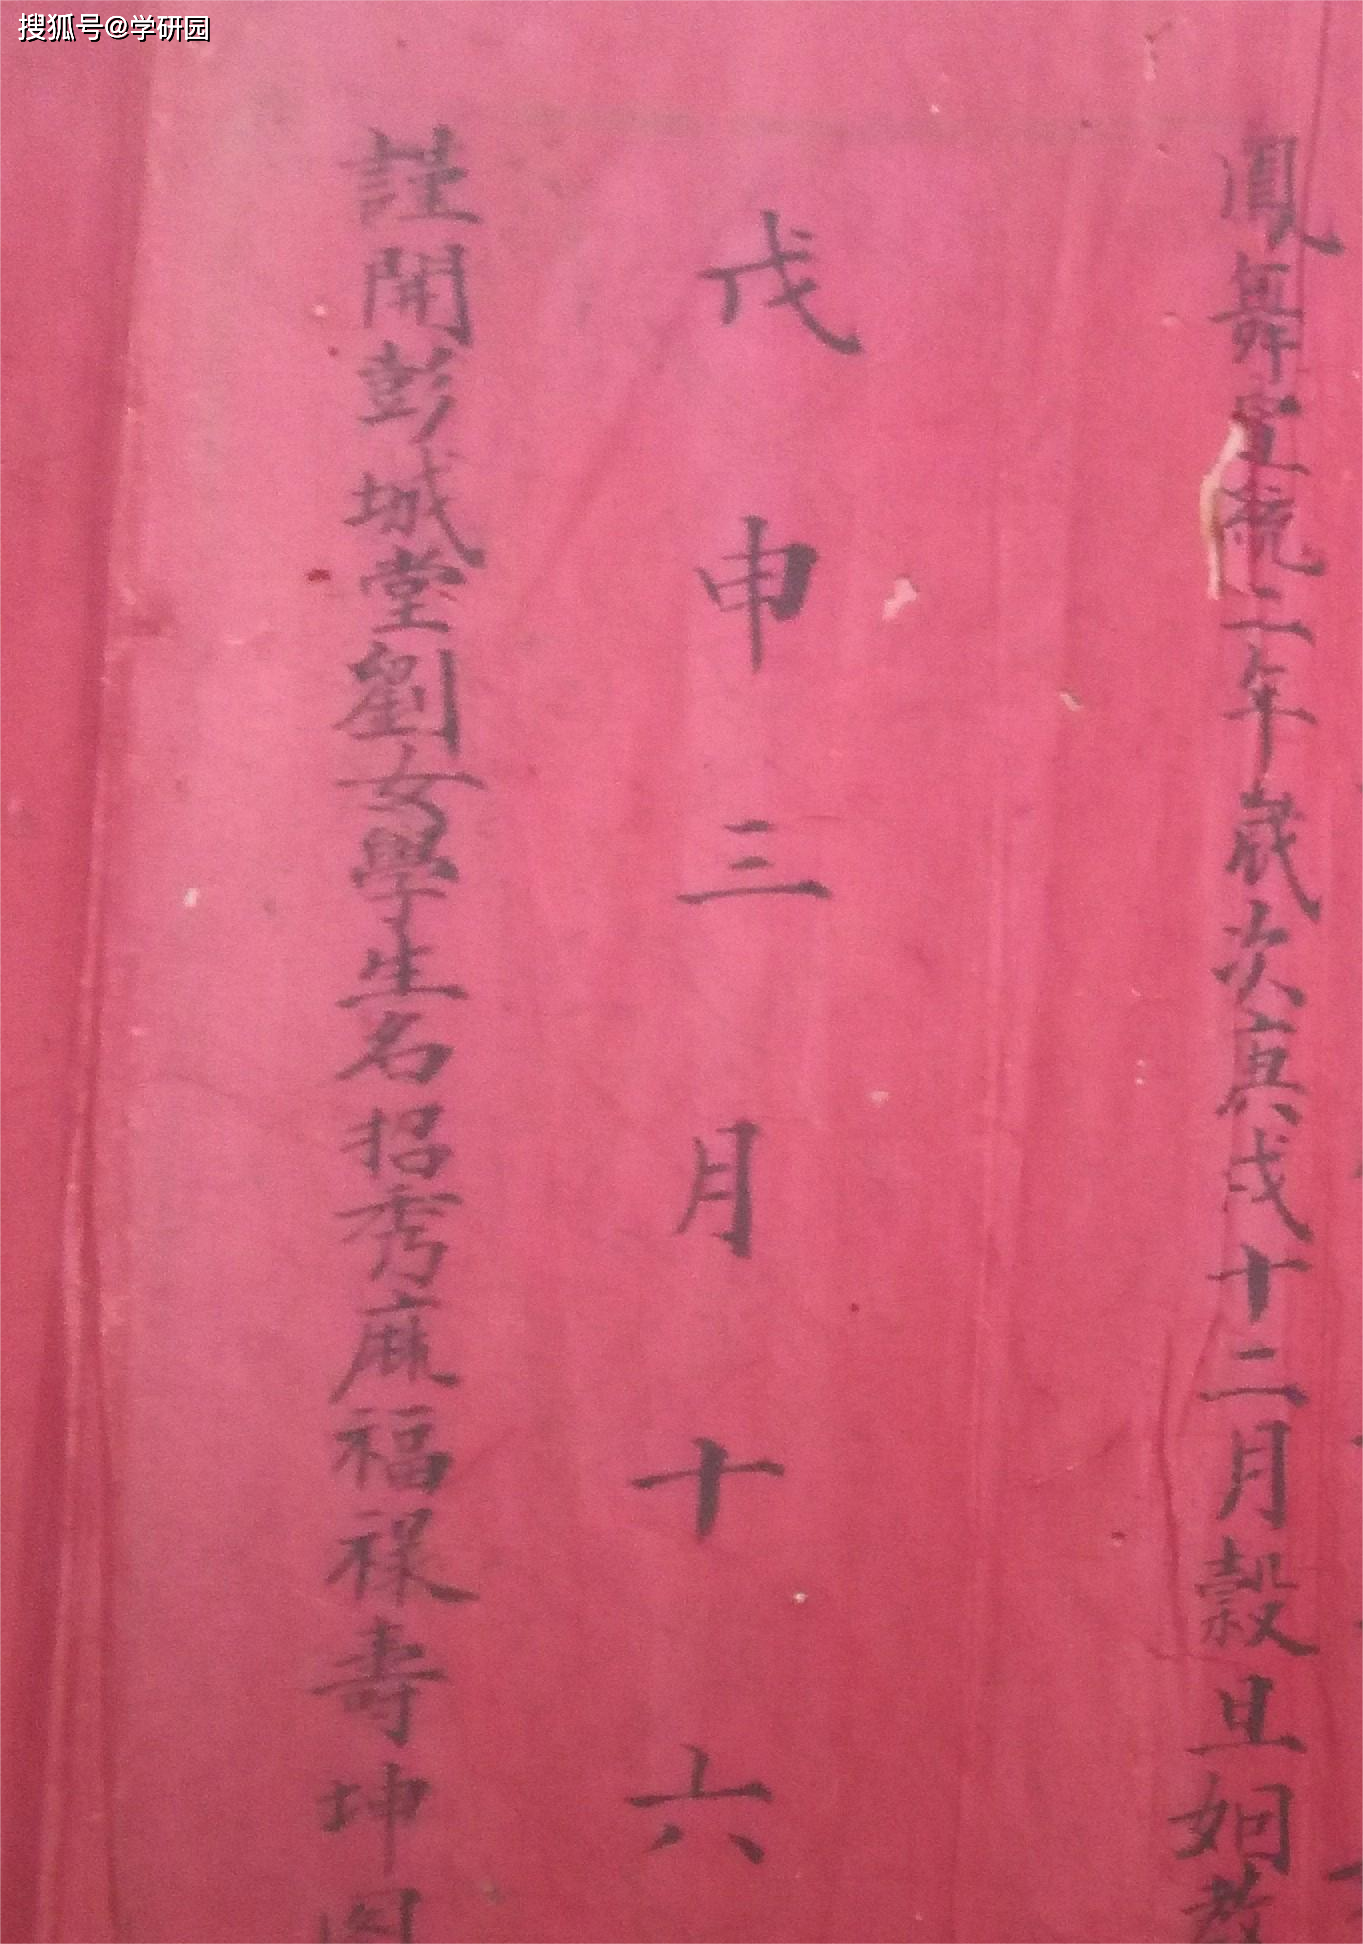 搜狐号@学研园
鳳舞宣統二年歲次庚戌十二月穀旦姻教
戊申三月十六
謹開彭城堂劉女學生名招秀庥福祿壽坤